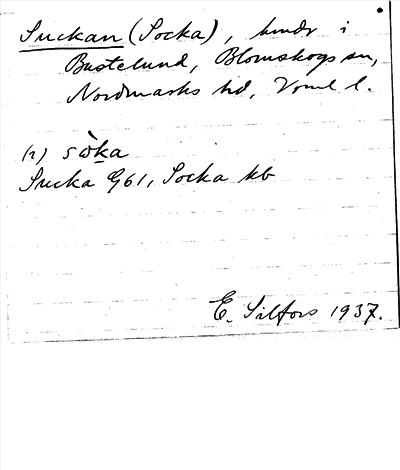 Suckan (Socka), hmdr i
Bastelund, Blomskogs sn,
Nordmarks hd, Verml l.
(1) sὼka
Sucka G61, Socka kb
E. Silfors 1937.